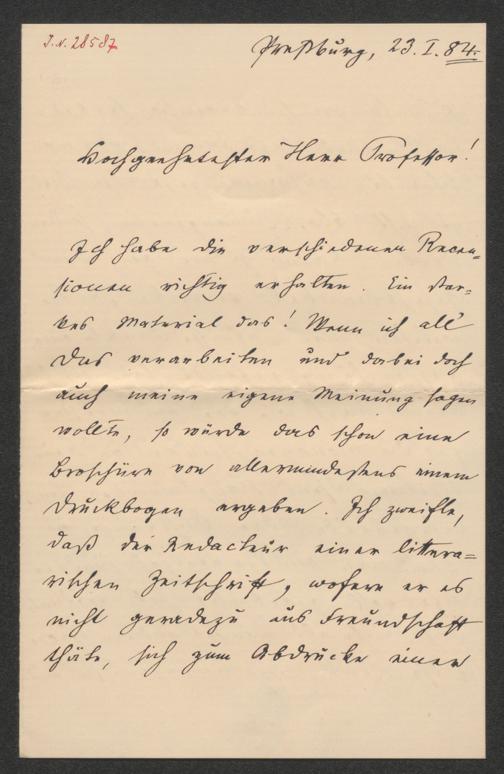 J.N. 28587
Preßburg, 23. I. 84.
Hochgeehrtester Herr Professor!
Ich habe die verschiedenen Recen-
sionen richtig erhalten. Ein star-
kes Material das! Wenn ich all'
das verarbeiten und dabei doch
auch meine eigene Meinung sagen
wollte, so würde das schon eine
Broschüre von allermindestens einem
Druckbogen ergeben. Ich zweifle,
daß der Redacteur einer littera-
rischen Zeitschrift, wofern er es
nicht geradezu aus Freundschaft
thäte, sich zum Abdrucke einer